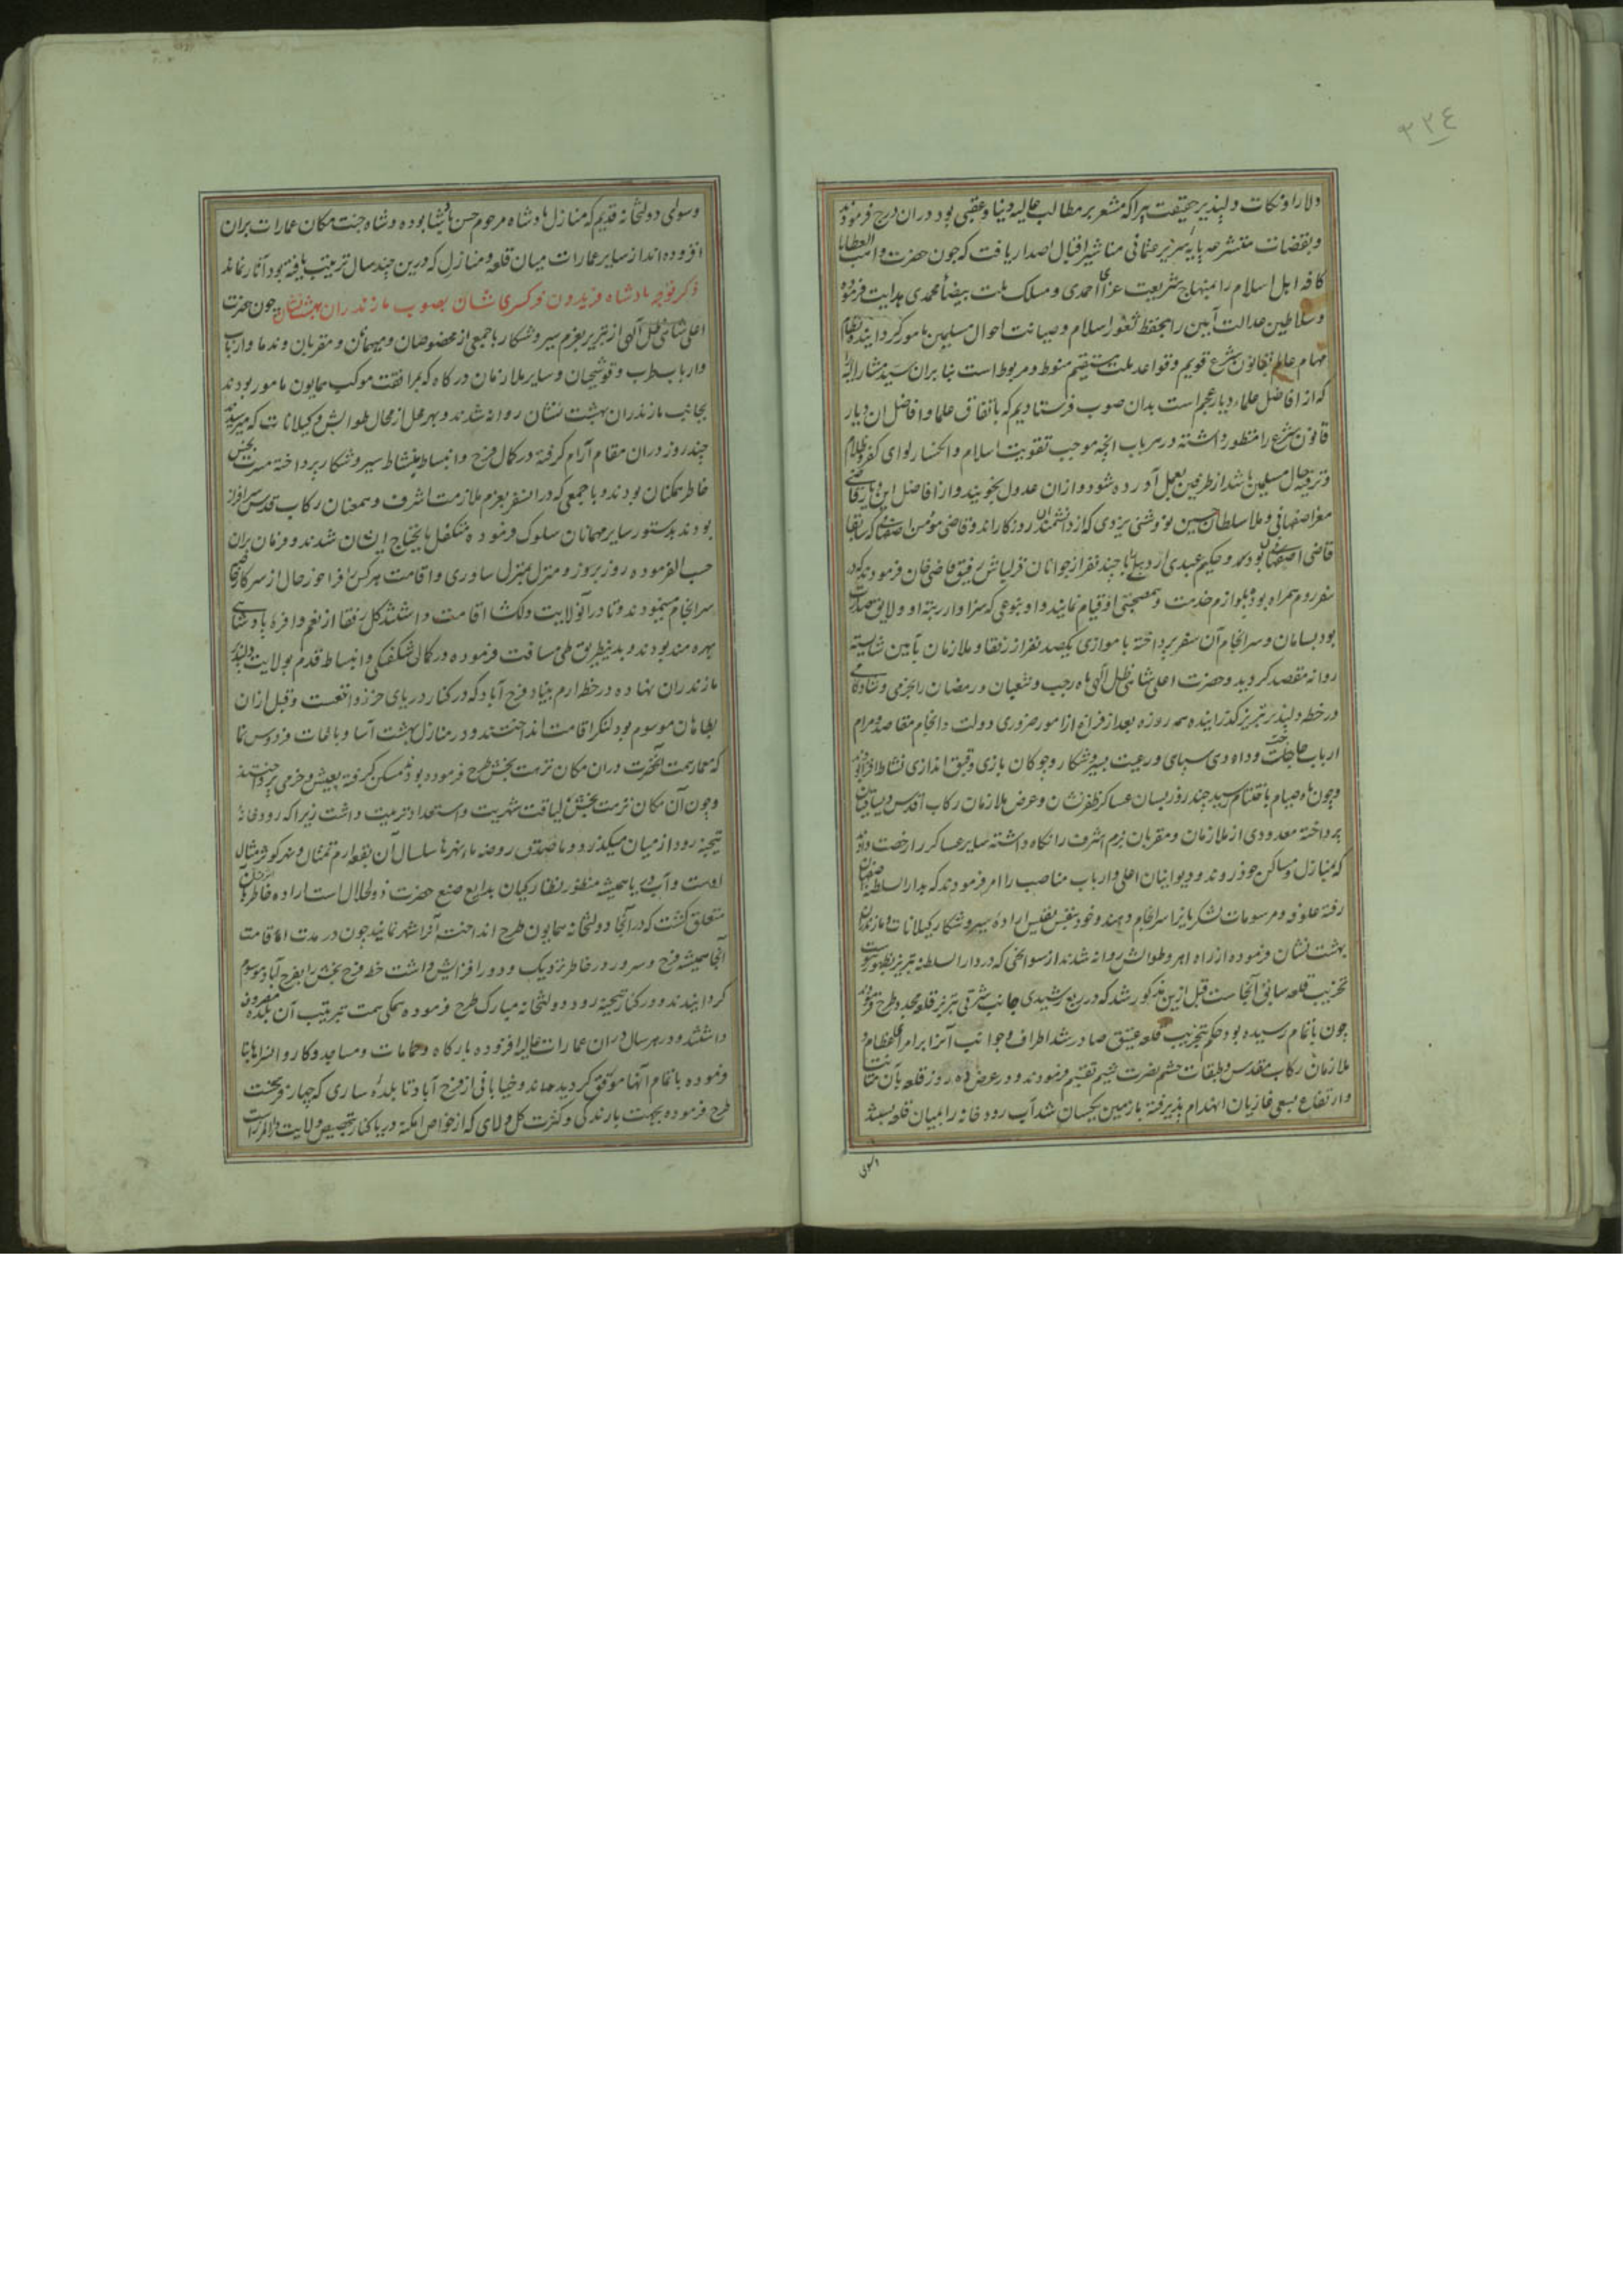 ٣٣٤
دلارا و نکات دلپذیر حقیقت پیرا که مشعر بر مطالب عالیه دنیا و عقبی بود در ان درج فرمودند
کافه اهل اسلام را بمنهاج شریعت غرای احمدی و مسلک ملت بیضاء محمدی هدایت فرموده
و سلاطین عدالت آیین را بحفظ ثغور اسلام و صیانت احوال مسلمین مامور کردانیده نظام
مهام عالم بقانون شرع قویم و قواعد ملت مستقیم منوط و مربوط است بنا بران سید مشار الیه
که از افاضل علماء دیار عجم است بدان صوب فرستادیم که باتفاق علما و افاضل ان دیار
قانون شرع را منظور داشته در هر باب انچه موجب تقویت اسلام و انکسار لوای کفر و ظلام
و ترفیه حال مسلمین باشد از طرفین بعمل آورده شود و از ان عدول نجویند و از افاضل این دیار قاضی
معز اصفهانی و ملا سلطان حسین ندوشنی یزدی که از دانشمندان روزکار اند و قاضی مؤمن اصفهانی که سابقا
قاضی اصفهان بود و حکیم عبدی اردبیلی با چند نفر از جوانان قزلباش رفیق قاضی خان فرمودند که در
سفر روم همراه بوده بلوازم خدمت و همصحبتی او قیام نمایند و او بنوعی که سزاوار رتبه او و لایق
بود بسامان و سرانجام آن سفر پرداخته با موازی یکصد نفر از رفقا و ملازمان بآیین شایسته
روانه مقصد کردید و حضرت اعلی شاهی ظل الهی ماه رجب و شعبان و رمضان را بخرمی و شادکامی
در خطه دلپذیر تبریز کذرانیده همه روزه بعد از فراغ از امور ضروری دولت و انجام مقاصد و مرام
ارباب حاجت و دادوی سپاهی و رعیت بسیر و شکار و چوکان بازی و قبق اندازی نشاط افزا بودند
و چون ماه صیام باختتام رسید چند روز بسان عساکر ظفرنشان و عرض ملازمان رکاب اقدس و یساقیان
پرداخته معدودی از ملازمان و مقربان بزم اشرف را نکاه داشته سایر عساکر را رخصت دادند
که بمنازل و مساکن خود روند و دیوانیان اعلی و ارباب مناصب را امر فرمودند که بدار السلطنه اصفهان
رفته علوفه و مرسومات لشکریانرا سرانجام دهند و خود بنفس نفیس اراده سیر و شکار کیلانات و مازندران
بهشت نشان فرموده از راه اهر و طوالش روانه شدند از سوانحی که در دار السلطنه تبریز بظهور پیوست
تخریب قلعه سابق آنجاست قبل ازین مذکور شد که در ربع رشیدی جانب شرقی تبریز قلعه مجدد طرح فرمودند
چون باتمام رسیده بود حکم بتخریب قلعه عتیق صادر شد اطراف و جوانب آنرا بر امرا عظام و
ملازمان رکاب مقدس و طبقات حشم نصرت شیم تقسیم فرمودند و در عرض ده روز قلعه بآن متانت
و ارتفاع بسعی غازیان انهدام پذیرفته با زمین یکسان شد آب رودخانه را بمیان قلعه بستند
وسوای
وسوای دولتخانه قدیم که منازل پادشاه مرحوم حسن پادشا بوده و شاه جنت مکان عمارات بران
افزوده اند از سایر عمارات میان قلعه و منازل که درین چند سال ترتیب یافته بود آثار نماند
ذکر توجه پادشاه فریدون فر کسری شان بصوب مازندران بهشت نشان چون حضرت
اعلی شاهی ظل الهی از تبریز بعزم سیر و شکار با جمعی از مخصوصان و میهمانان و مقربان و ندما و ارباب
و ارباب طرب و قوشچیان و سایر ملازمان درکاه که بمرافقت موکب همایون مامور بودند
بجانب مازندران بهشت نشان روانه شدند و بهر محل از محال طوالش و کیلانات که میرسیدند
چند روز دران مقام آرام کرفته در کمال فرح و انبساط بنشاط سیر و شکار پرداخته مسرت بخش
خاطر همکنان بودند و با جمعی که در انسفر بعزم ملازمت اشرف و همعنان رکاب قدس سرافراز
بودند بدستور سایر مهمانان سلوک فرموده متکفل مایحتاج ایشان شدند و فرمان بران
حسب الفرموده روز بروز و منزل بمنزل ساوری و اقامت هرکس را فراخور حال از سرکار خاصه
سرانجام مینمودند و تا در آنولایت دلکشا اقامت داشتند کل رفقا از نعم وافره پادشاهی
بهره مند بودند و بدینطریق طی مسافت فرموده در کمال شکفتکی و انبساط قدم بولایت دلپذیر
مازندران نهاده در خطه ارم بنیاد فرح آباد که در کنار دریای خزر واقعست و قبل ازان
بطاهان موسوم بود لنکر اقامت انداختند و در منازل بهشت آسا و باغات فردوس نما
که معمار همت آنحضرت دران مکان نزهت بخش طرح فرموده بود مسکن کرفته بعیش و خرمی پرداختند
و چون آن مکان نزهت بخش لیاقت شهریت و استعداد تربیت داشت زیرا که رودخانه
تیجنه رود از میان میکذرد و ماصدق روضه ماء نهرها سلسال آن بقعه ارم تمثال و نهر کوثر مثال
اوست و آب دریا همیشه منظور نظارکیان بدایع صنع حضرت ذو الجلال است اراده خاطر
متعلق کشت که در آنجا دولتخانه همایون طرح انداخته آنرا شهر نمایند چون در مدت اقامت
آنجا همیشه فرح و سرور در خاطر نزدیک و دور افزایش داشت خطه فرح بخش را بفرح آباد موسوم
کردانیدند و در کنار تیجنه رود دولتخانه مبارک طرح فرموده همکی همت بترتیب آن بلده مصروف
داشتند و در هر سال دران عمارات عالیه افزوده بارکاه و حمامات و مساجد و کاروانسراها بنا
فرموده باتمام آنها موفق کردیده اند و خیابانی از فرح آباد تا بلده ساری که چهار فرسخست
طرح فرموده بجهت بارندکی و کثرت کل و لای که از خواص امکنه دریا کنار بتخصیص ولایت دار المرزست